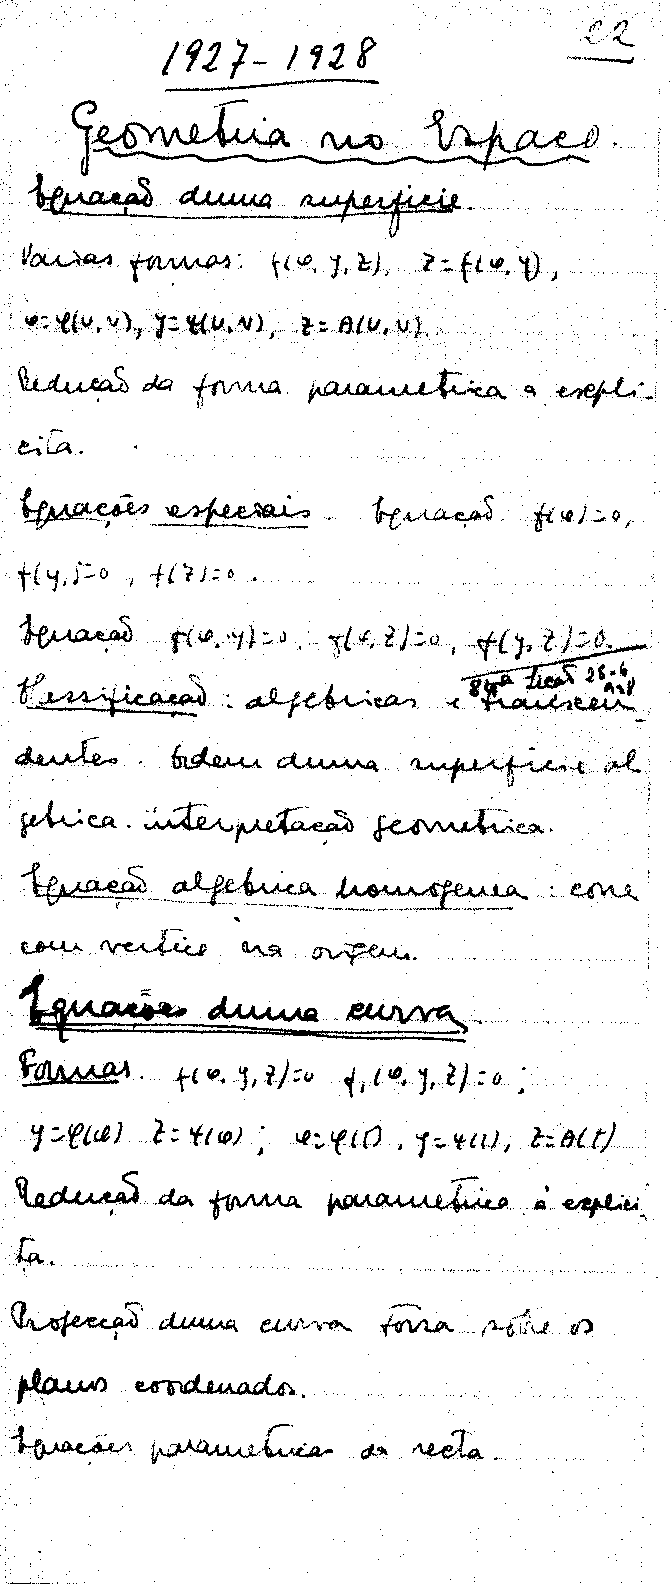 22
1927-1928
Geometria no Espaço.
Equação duma superficie.
Varias formas: f(x, y, z), z=f(x, y),
x=φ(u, v), y=ψ(u, v), z=θ(u, v).
Redução da forma parametrica a expli-
cita.
Equações especiais. Equação f(x)=0,
f(y)=0, f(z)=0.
Equação f(x, y)=0, f(x, z)=0, f(y, z)=0.
lição 28-4
Classificação: algebricas e transcen-
dentes. Ordem duma superficie al
gebrica. interpretação geometrica.
Equação algebrica homogenea: cone
com vertice na origem.
Equações duma curva.
Formas. f(x, y, z)=0 f,(x, y, z)=0;
y=φ(x) z=ψ(x); x=φ(t), y=ψ(t), z=θ(t)
Redução da forma parametrica á explici
ta.
Projecção duma curva torsa sobre os
planos coordenados.
Equações parametricas da recta.